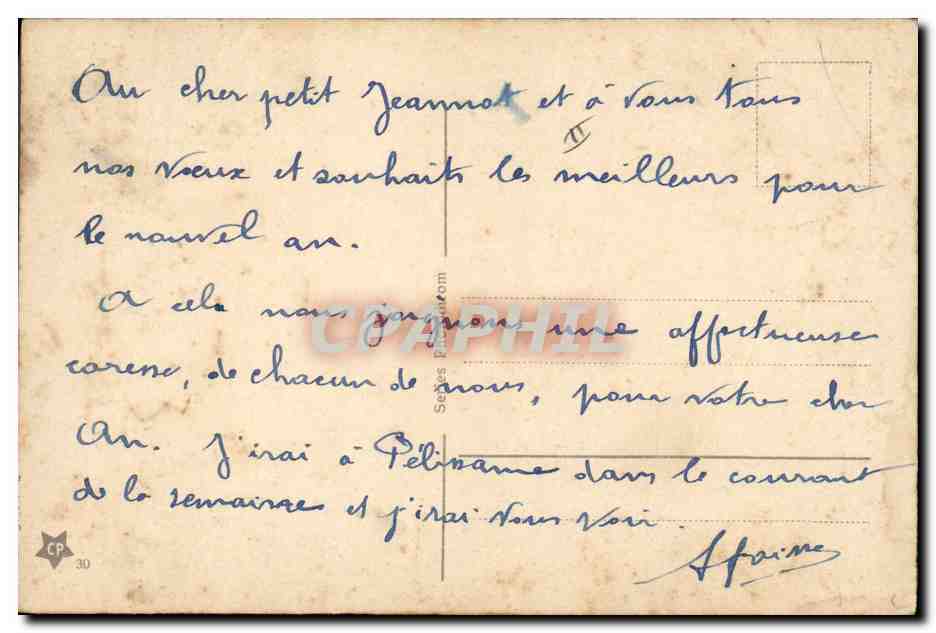 Au cher petit Jeannot et à vous tous
II
nos vœux et souhaits les meilleurs pour
le nouvel an.
A cela nous joignons une affectueuse
caresse, de chacun de nous, pour votre cher
An. J'irai à Pélissane dans le courant
de la semaine et j'irai vous voir
CPAPHIL
CP
30